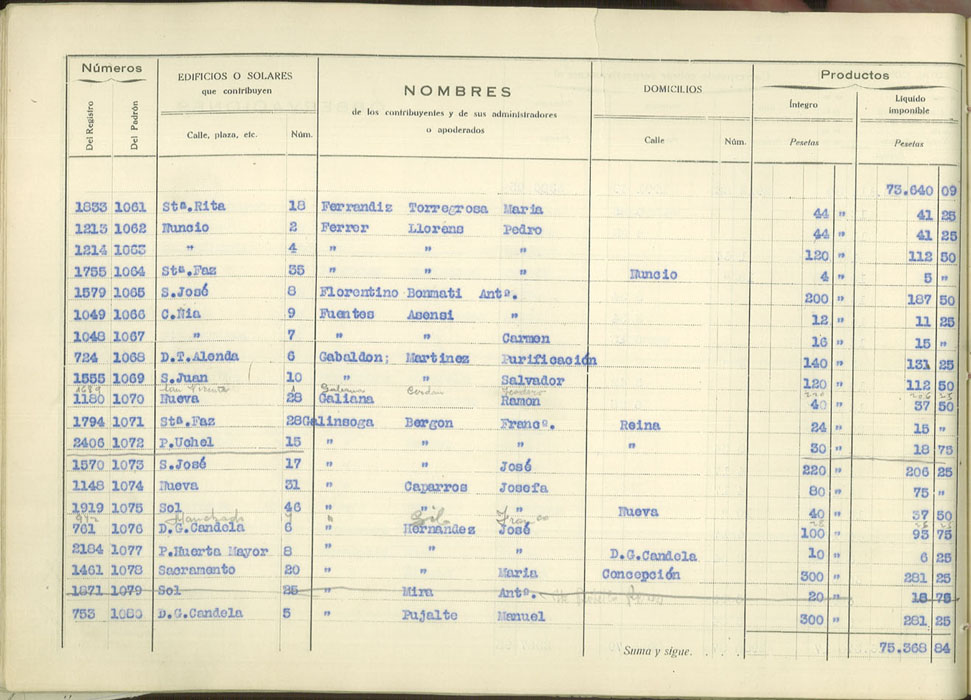 Números
EDIFICIOS O SOLARES
que contribuyen
NOMBRES
de los contribuyentes y de sus administradores
o apoderados
DOMICILIOS
Productos
Del Registro
Del Padrón
Calle, plaza, etc.
Núm.
Calle
Núm.
Íntegro
Pesetas
Líquido
imponible
Pesetas
73.640 09
1833 1061 Stª.Rita 18 Ferrandiz Torregrosa Maria 44 " 41 25
1213 1062 Nuncio 2 Ferrer Llorens Pedro 44 " 41 25
1214 1063 " 4 " " " 120 " 112 50
1755 1064 Stª.Faz 35 " " " Nuncio 4 " 5 "
1579 1065 S.José 8 Florentino Bonmati Antº. 200 " 187 50
1049 1066 C.Ñia 9 Fuentes Asensi " 12 " 11 25
1048 1067 " 7 " " Carmen 16 " 15 "
724 1068 D.T.Alenda 6 Gabaldon; Martinez Purificación 140 " 131 25
1555 1069 S.Juan 10 " " Salvador 120 " 112 50
1180 1070 Nueva 28 Galiana Ramon 40 " 37 50
1794 1071 Stª.Faz 28 Galinsoga Bergon Francº. Reina 24 " 15 "
2406 1072 P.Uchel 15 " " " " 30 " 18 75
1570 1073 S.José 17 " " José 220 " 206 25
1148 1074 Nueva 31 " Caparros Josefa 80 " 75 "
1919 1075 Sol 46 " " " Nueva 40 " 37 50
Gil
761 1076 D.G.Candela 6 " Hernandez José 100 " 93 75
2184 1077 P.Huerta Mayor 8 " " " D.G.Candela 10 " 6 25
1461 1078 Sacramento 20 " " Maria Concepción 300 " 281 25
1871 1079 Sol 25 " Mira Antº. 20 " 18 75
753 1080 D.G.Candela 5 " Pujalte Manuel 300 " 281 25
Suma y sigue. . . . . 75.368 84